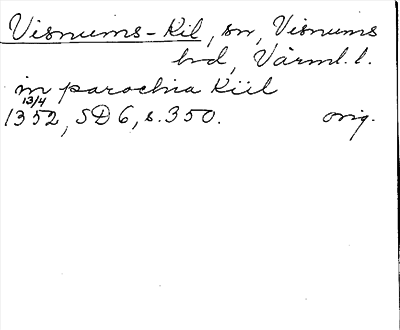 Visnums-Kil, sn, Visnums
hd, Värml. l.
in parochia Kiil
13/4
1352, SD 6, s. 350. orig.